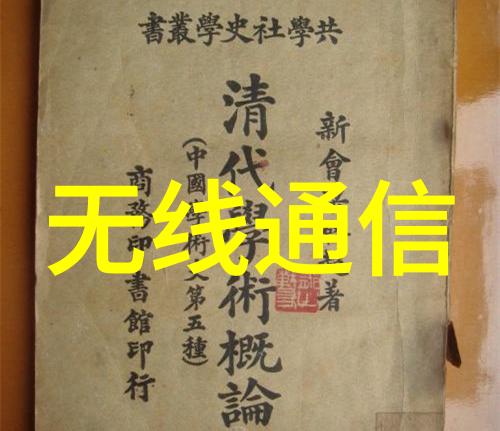 共學社史學叢書
新會著
清代學術概論
(中國學術第五種)
商務印書館印行
无线通信